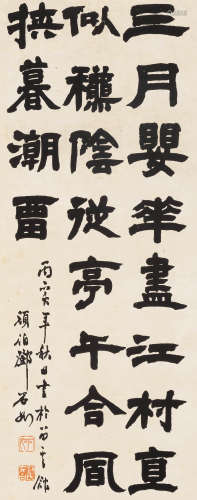 三月嬰華盡江村直
似穠陰從亭午合風
挾暮潮畱
丙寅年秋日書於
頑伯鄧石如